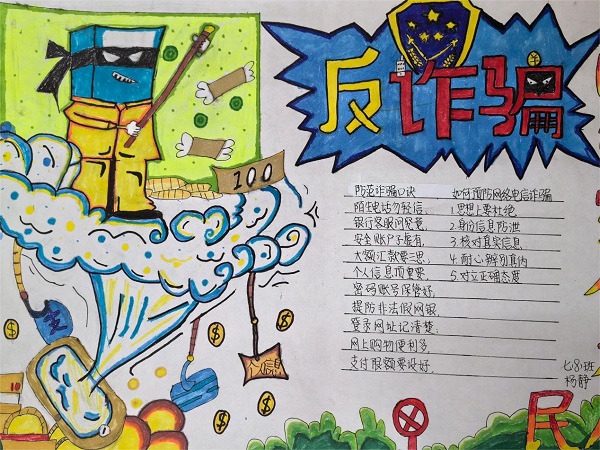 反诈骗
100
防范诈骗口诀
陌生电话勿轻信,
银行客服问究竟,
安全账户子虚有,
大额汇款要三思,
个人信息顶重要
密码账号保管好,
提防非法假网银,
登录网址记清楚,
网上购物便利多,
支付限额要设好.
如何预防网络电信诈骗
1.思想上要杜绝
2.身份信息防泄
3.核对真实信息
4.耐心辨别真
5.对立正确态度
支
个信息
10
七8班
杨静
民